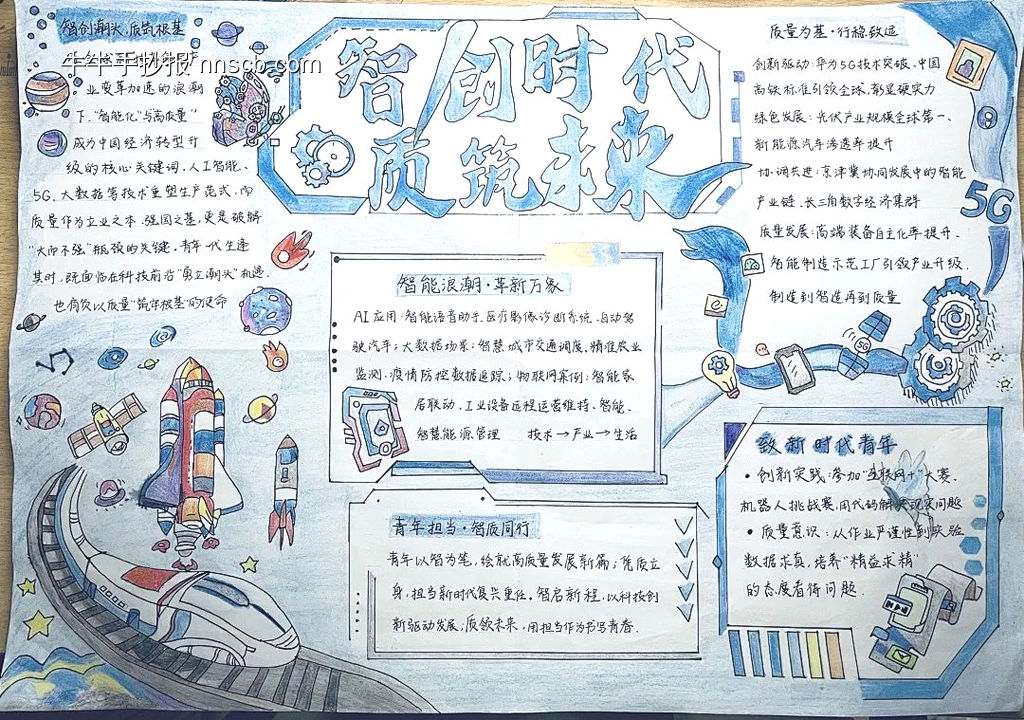 智创潮头·质筑根基
牛牛手抄报 nnscb.com
业变革加速的浪潮
下，"智能化"与高质量"
成为中国经济转型升
级的核心关键词，人工智能、
5G、大数据等技术重塑生产范式，而
质量作为立业之本、强国之基，更是破解
"大而不强"瓶颈的关键。青年一代生逢
其时，既面临在科技前沿"勇立潮头"机遇，
也肩负以质量"筑牢根基"的使命
智创时代
质筑未来
质量为基·行稳致远
创新驱动：华为5G技术突破、中国
高铁标准引领全球，彰显硬实力
绿色发展：光伏产业规模全球第一、
新能源汽车渗透率提升
协调共进：京津冀协同发展中的智能
产业链、长三角数字经济集群
质量发展：高端装备自主化率提升、
智能制造示范工厂引领产业升级.
制造到智造再到质量
5G
智能浪潮·革新万象
AI应用：智能语音助手、医疗影像诊断系统、自动驾
驶汽车；大数据场景：智慧城市交通调度、精准农业
监测、疫情防控数据追踪；物联网案例：智能家
居联动、工业设备远程运营维持、智能、
智慧能源管理 技术→产业→生活
5G
青年担当·智质同行
青年以智为笔，绘就高质量发展新篇；凭质立
身，担当新时代复兴重任。智启新程，以科技创
新驱动发展；质领未来，用担当作为书写青春.
致新时代青年
• 创新实践：参加"互联网+"大赛、
机器人挑战赛，用代码解决现实问题
• 质量意识：从作业严谨性到实验
数据求真，培养"精益求精"
的态度看待问题.